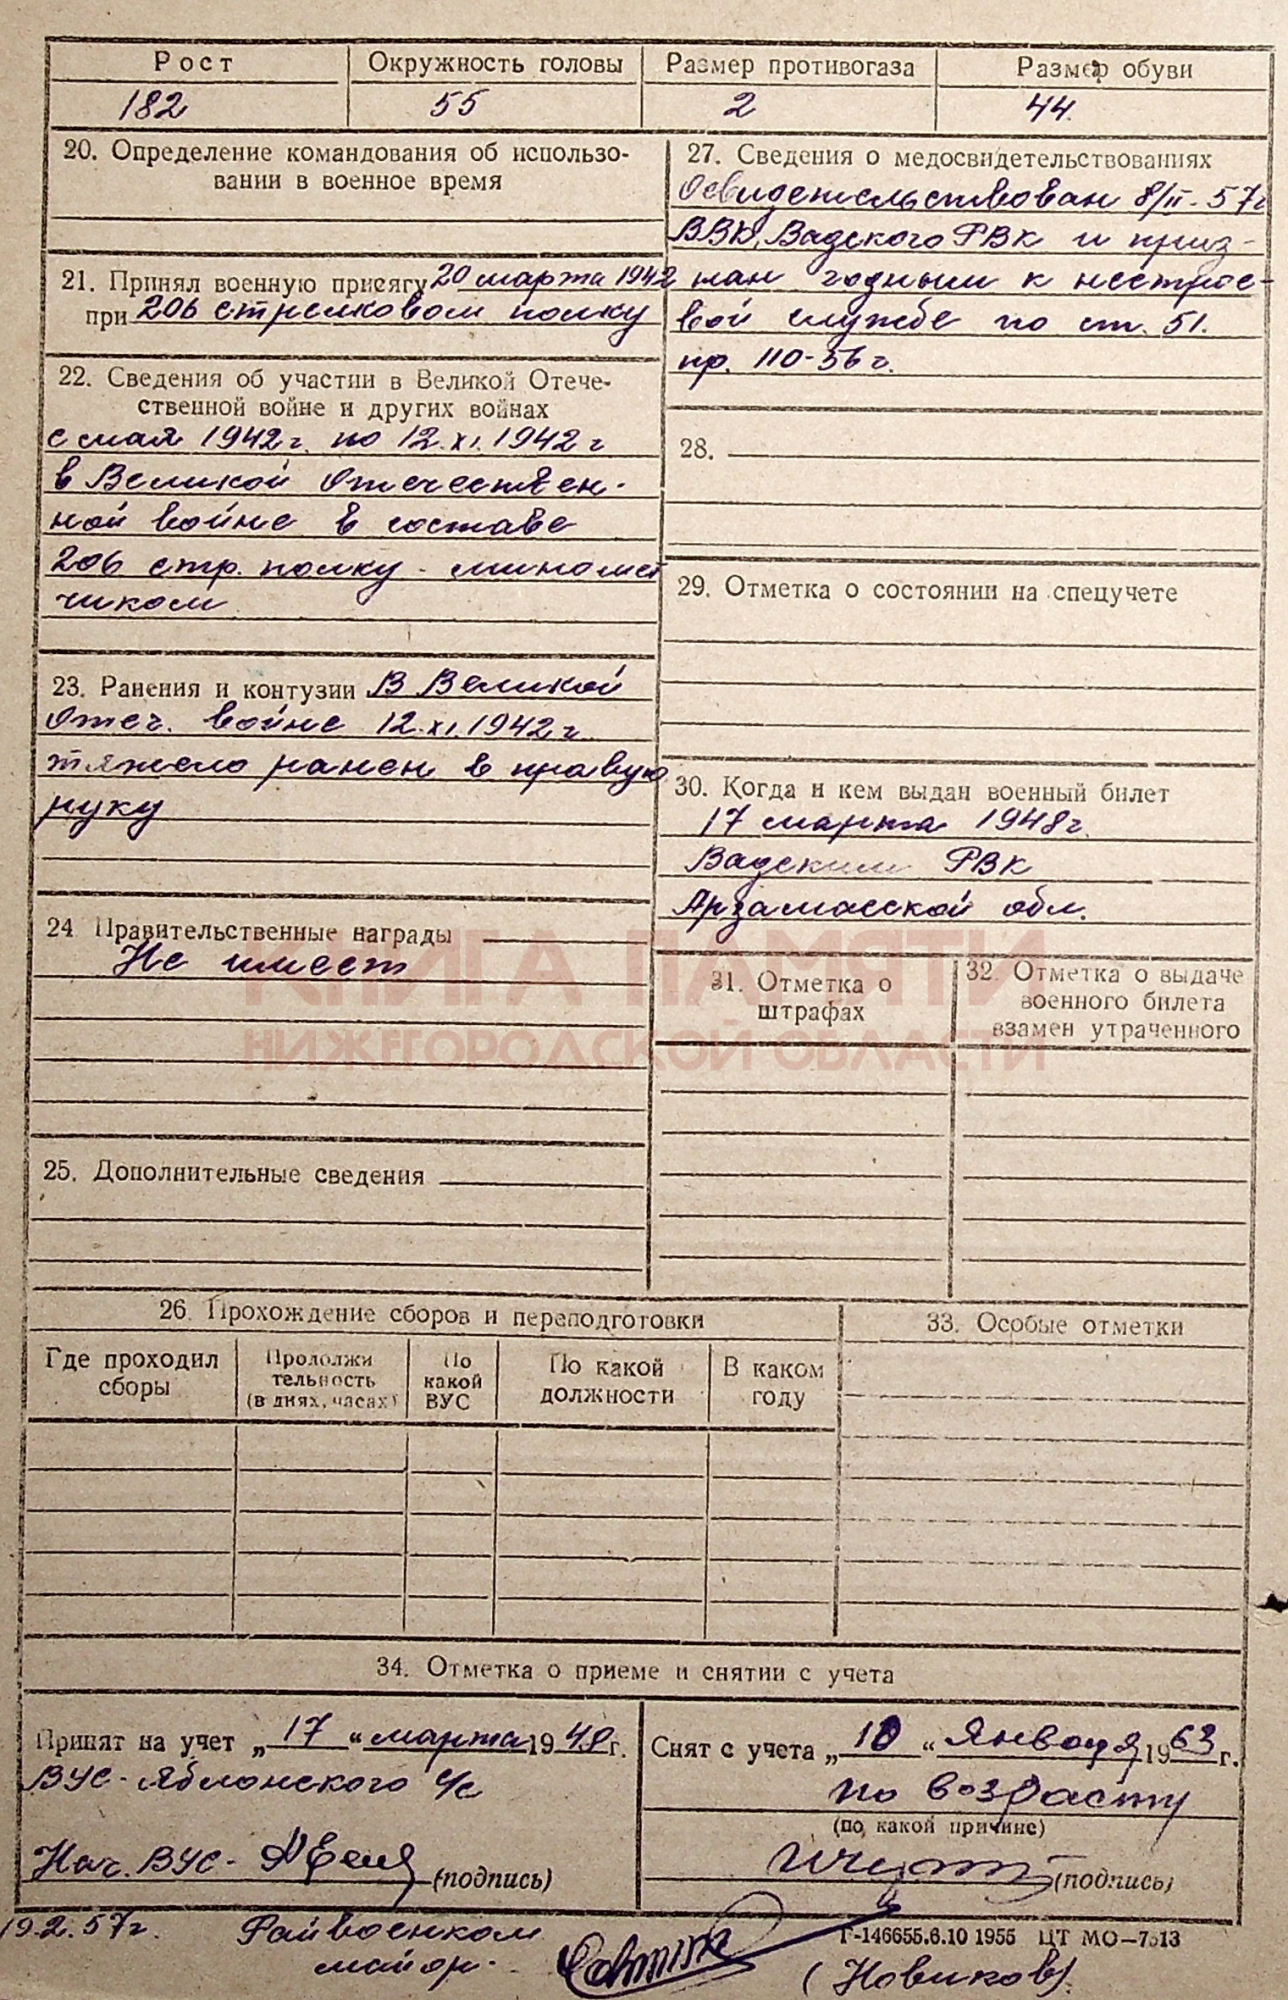 Рост Окружность головы Размер противогаза Размер обуви
182 55 2 44
20. Определение командования об использо-
вании в военное время
21. Принял военную присягу 20 марта 1942
при 206 стрелковом полку
22. Сведения об участии в Великой Отече-
ственной войне и других войнах
с мая 1942 г. по 12.XI.1942 г
в Великой Отечествен-
ной войне в составе
206 стр. полку - миномет
чиком
23. Ранения и контузии В Великой
Отеч. войне 12.XI.1942 г.
тяжело ранен в правую
руку
24 Правительственные награды
Не имеет
25. Дополнительные сведения
27. Сведения о медосвидетельствованиях
Освидетельствован 8/II-57 г
ВВК Вадского РВК и приз-
нан годным к нестрое-
вой службе по ст. 51.
пр. 110-56 г.
28.
29. Отметка о состоянии на спецучете
30. Когда и кем выдан военный билет
17 марта 1948 г.
Вадским РВК
Арзамасской обл.
31. Отметка о
штрафах
32. Отметка о выдаче
военного билета
взамен утраченного
КНИГА ПАМЯТИ
НИЖЕГОРОДСКОЙ ОБЛАСТИ
26. Прохождение сборов и переподготовки
Где проходил
сборы
Продолжи
тельность
(в днях, часах)
По
какой
ВУС
По какой
должности
В каком
году
33. Особые отметки
34. Отметка о приеме и снятии с учета
Принят на учет „17“ марта 1948 г.
ВУС - Яблонского с/с
Нач. ВУС - (подпись)
Снят с учета „10“ Января 1963 г.
по возрасту
(по какой причине)
(подпись)
19.2.57 г. Райвоенком
майор.
(Новиков).
Г-146655.6.10 1955 ЦТ МО—7513